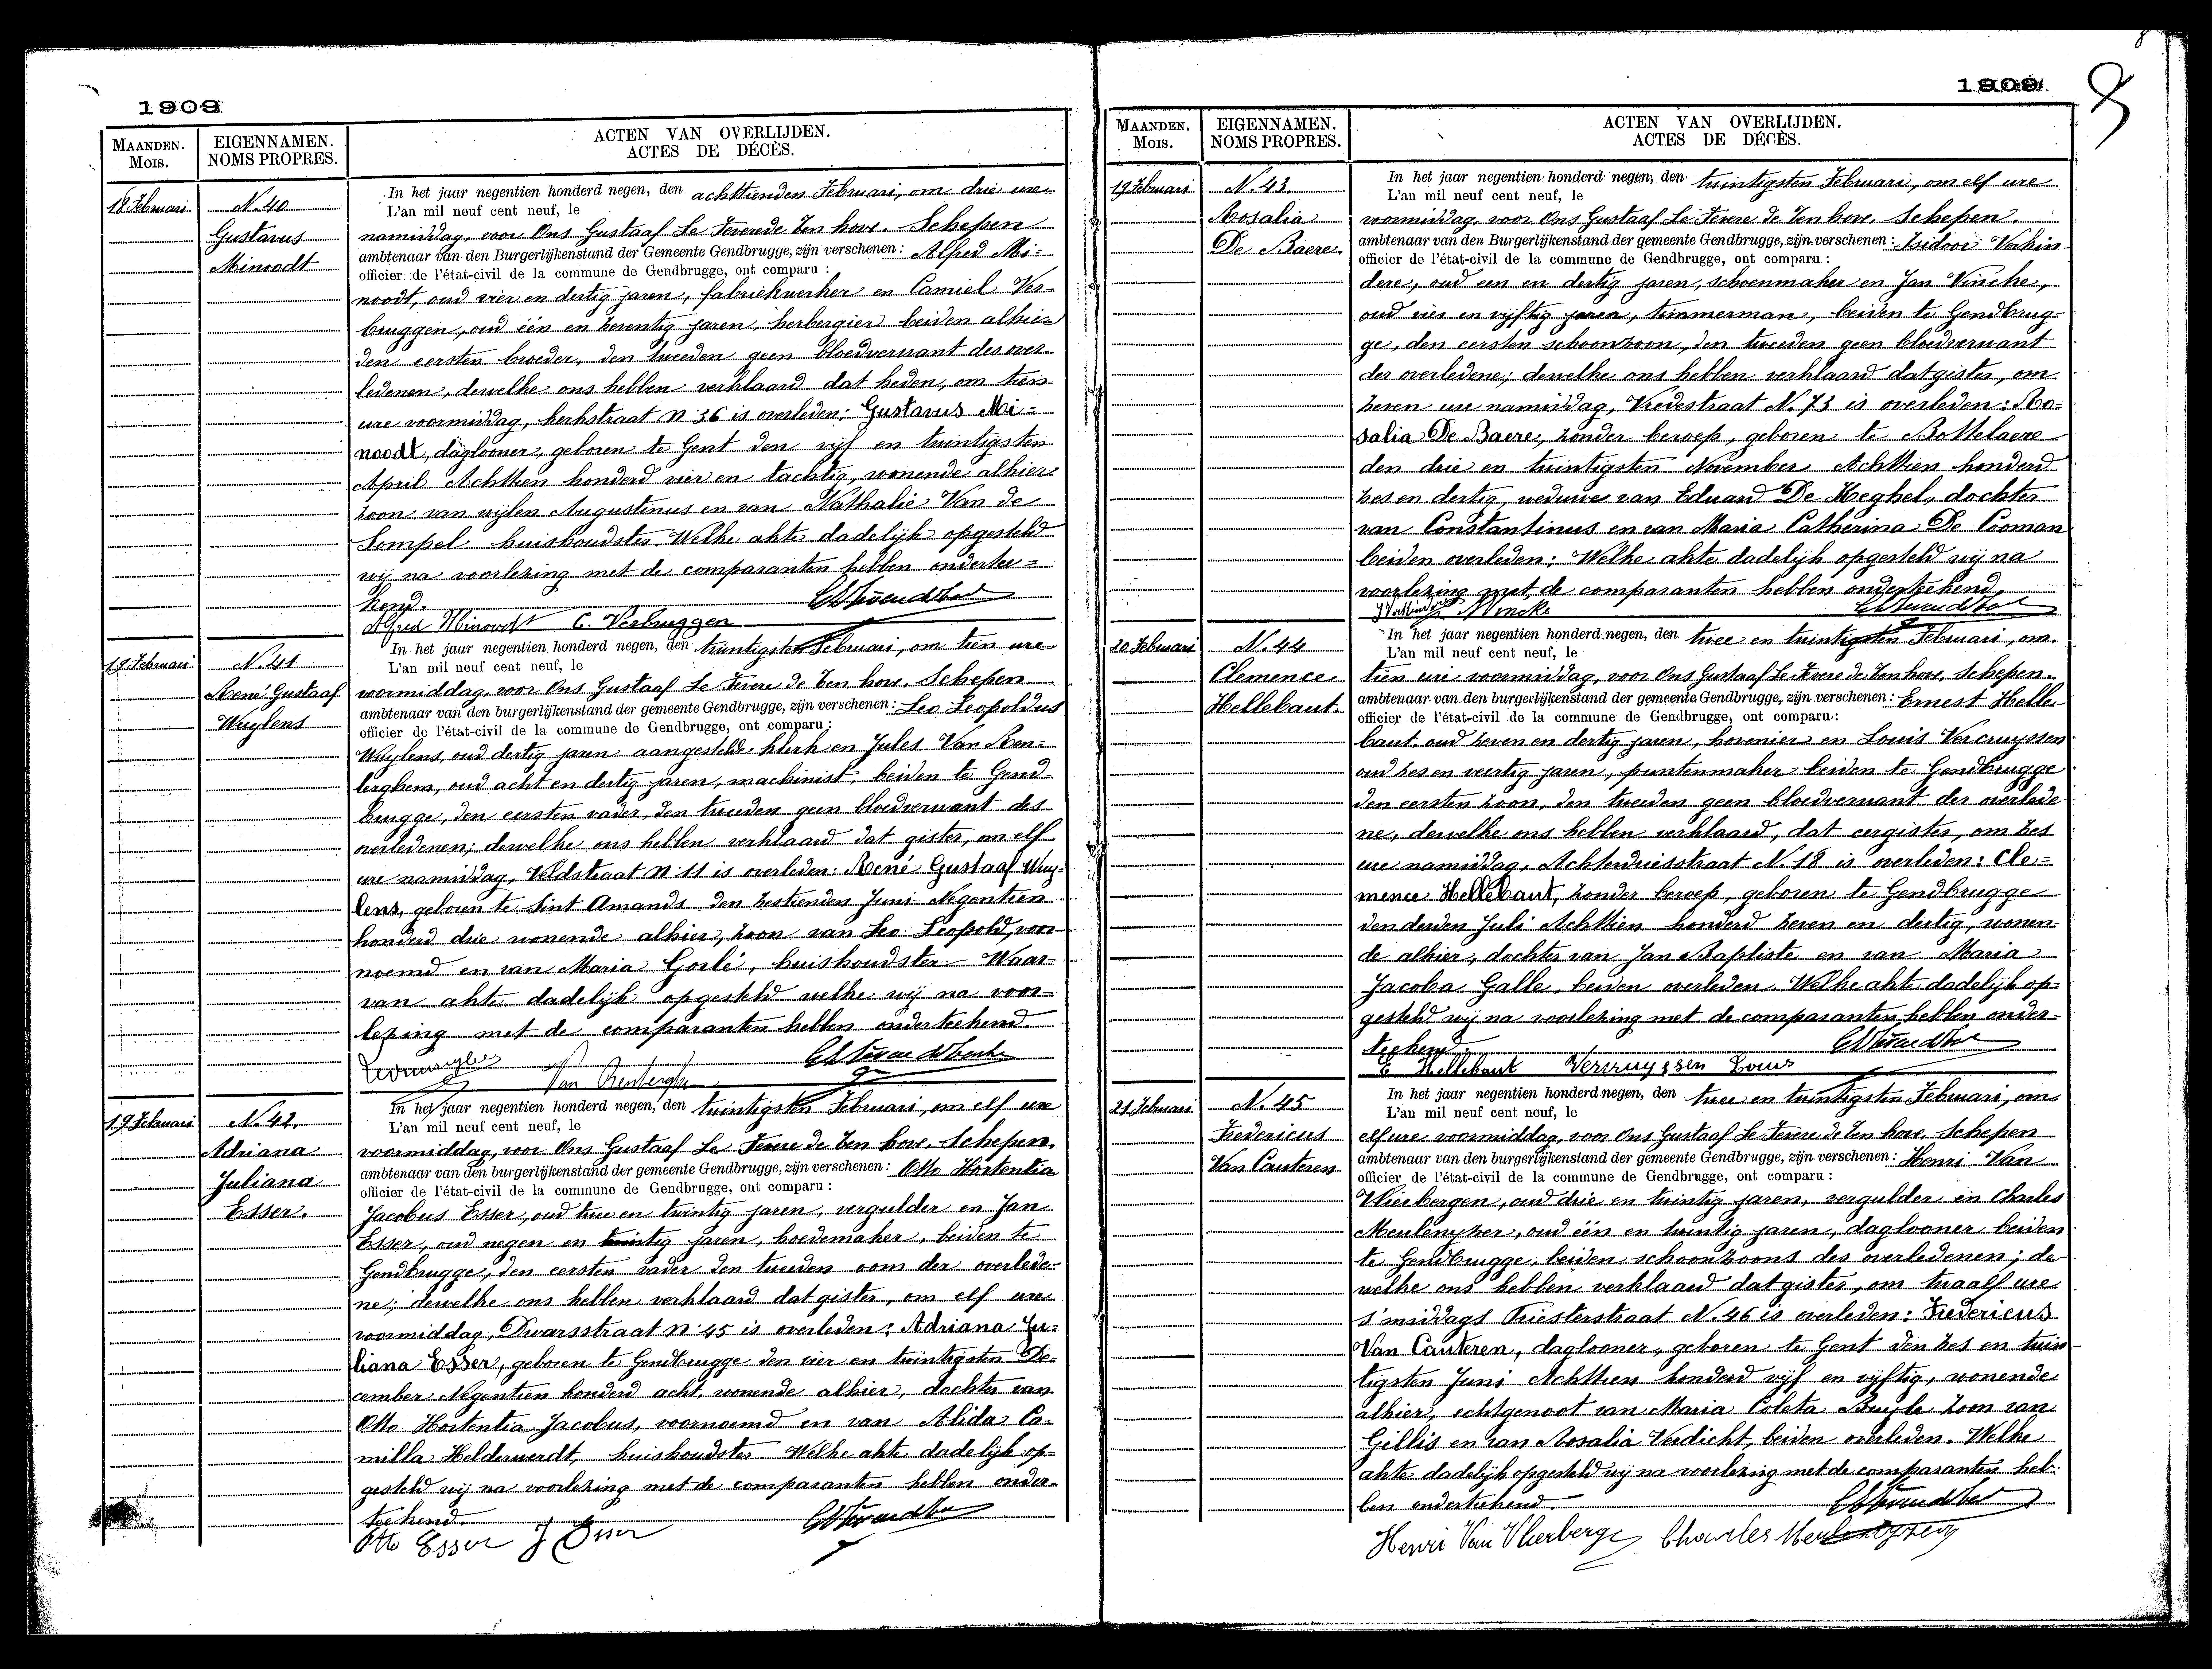 8
1909
MAANDEN.
MOIS.
EIGENNAMEN.
NOMS PROPRES.
ACTEN VAN OVERLIJDEN.
ACTES DE DÉCÈS.
18 Februari
N. 40
Gustavus
Minoodt
In het jaar negentien honderd negen, den achttienden Februari, om drie ure
L'an mil neuf cent neuf, le
namiddag, voor Ons Gustaaf Le Fevere de Ten hove. Schepen
ambtenaar van den Burgerlijkenstand der Gemeente Gendbrugge, zijn verschenen: Alfred Mi-
officier de l'état-civil de la commune de Gendbrugge, ont comparu :
noodt, oud vier en dertig jaren, fabriekwerker en Camiel Ver-
bruggen, oud één en zeventig jaren, herbergier beiden alhier
den eersten broeder, den tweeden geen bloedverwant des over-
ledenen, dewelke ons hebben verklaard dat heden, om tien
ure voormiddag, kerkstraat N 36 is overleden: Gustavus Mi-
noodt, daglooner, geboren te Gent den vijf en twintigsten
April Achttien honderd vier en tachtig, wonende alhier
zoon van wijlen Augustinus en van Nathalie Van de
Sompel huishoudster. Welke akte dadelijk opgesteld
wij na voorlezing met de comparanten hebben ondertee-
kend.
Alfred Minoodt C. Verbruggen
19 Februari
N. 41
René Gustaaf
Wuylens
In het jaar negentien honderd negen, den twintigsten Februari, om tien ure
L'an mil neuf cent neuf, le
voormiddag, voor Ons Gustaaf Le Fevere de Ten hove. Schepen
ambtenaar van den burgerlijkenstand der gemeente Gendbrugge, zijn verschenen: Leo Leopoldus
officier de l'état-civil de la commune de Gendbrugge, ont comparu :
Wuylens, oud dertig jaren aangestelde klerk en Jules Van Ren-
terghem, oud acht en dertig jaren, machinist, beiden te Gend-
brugge, den eersten vader, den tweeden geen bloedverwant des
overledenen; dewelke ons hebben verklaard dat gister, om elf
ure namiddag, Veldstraat N 11 is overleden: René Gustaaf Wuy-
lens, geboren te Sint Amands den zestienden Juni Negentien
honderd drie wonende alhier, zoon van Leo Leopold, voor-
noemd en van Maria Gorlé, huishoudster. Waar-
van akte dadelijk opgesteld welke wij na voor-
lezing met de comparanten hebben onderteekend.
Van Renterghem
19 Februari
N. 42.
Adriana
Juliana
Esser.
In het jaar negentien honderd negen, den twintigsten Februari, om elf ure
L'an mil neuf cent neuf, le
voormiddag, voor Ons Gustaaf Le Fevere de Ten hove. Schepen.
ambtenaar van den burgerlijkenstand der gemeente Gendbrugge, zijn verschenen: Otto Hortentia
officier de l'état-civil de la commune de Gendbrugge, ont comparu :
Jacobus Esser, oud twee en twintig jaren, vergulder en Jan
Esser, oud negen en twintig jaren, hoedemaker, beiden te
Gendbrugge, den eersten vader den tweeden oom der overlede-
ne; dewelke ons hebben verklaard dat gister, om elf ure
voormiddag, Dwarsstraat N 45 is overleden: Adriana Ju-
liana Esser, geboren te Gendbrugge den vier en twintigsten De-
cember Negentien honderd acht, wonende alhier, dochter van
Otto Hortentia Jacobus, voornoemd en van Alida Ca-
milla Helderwerdt, huishoudster. Welke akte dadelijk op-
gesteld wij na voorlezing met de comparanten hebben onder-
teekend.
Otto Esser J Esser
8
1909
MAANDEN.
MOIS.
EIGENNAMEN.
NOMS PROPRES.
ACTEN VAN OVERLIJDEN.
ACTES DE DÉCÈS.
19 Februari
N. 43.
Rosalia
De Baere.
In het jaar negentien honderd negen, den twintigsten Februari, om elf ure
L'an mil neuf cent neuf, le
voormiddag, voor Ons Gustaaf Le Fevere de Ten hove. Schepen.
ambtenaar van den Burgerlijkenstand der gemeente Gendbrugge, zijn verschenen: Isidoor Verkin-
officier de l'état-civil de la commune de Gendbrugge, ont comparu :
dere, oud een en dertig jaren, schoenmaker en Jan Vincke,
oud vier en vijftig jaren, timmerman, beiden te Gendbrug-
ge, den eersten schoonzoon, den tweeden geen bloedverwant
der overledene; dewelke ons hebben verklaard dat gister, om
zeven ure namiddag, Vredestraat N. 73 is overleden: Ro-
salia De Baere, zonder beroep, geboren te Bottelaere
den drie en twintigsten November Achttien honderd
zes en dertig, weduwe van Eduard De Keghel, dochter
van Constantinus en van Maria Catherina De Cooman
beiden overleden: Welke akte dadelijk opgesteld wij na
voorlezing met de comparanten hebben onderteekend.
J Verkindere J Vincke
20 Februari
N. 44
Clemence
Hellebaut.
In het jaar negentien honderd negen, den twee en twintigsten Februari, om
L'an mil neuf cent neuf, le
tien ure voormiddag, voor Ons Gustaaf Le Fevere de Ten hove, Schepen.
ambtenaar van den burgerlijkenstand der gemeente Gendbrugge, zijn verschenen: Ernest Helle-
officier de l'état-civil de la commune de Gendbrugge, ont comparu :
baut, oud zeven en dertig jaren, hovenier en Louis Vercruyssen
oud zes en veertig jaren, puntenmaker beiden te Gendbrugge
den eersten zoon, den tweeden geen bloedverwant der overlede-
ne, dewelke ons hebben verklaard, dat eergister, om zes
ure namiddag, Achterdriesstraat N. 18 is overleden: Cle-
mence Hellebaut, zonder beroep, geboren te Gendbrugge
den derden Juli Achttien honderd zeven en dertig, wonen-
de alhier, dochter van Jan Baptiste en van Maria
Jacoba Galle, beiden overleden. Welke akte dadelijk op-
gesteld wij na voorlezing met de comparanten hebben onder-
teekend.
E Hellebaut Vercruyssen Louis
21 Februari
N. 45
Fredericus
Van Cauteren
In het jaar negentien honderd negen, den twee en twintigsten Februari, om
L'an mil neuf cent neuf, le
elf ure voormiddag, voor Ons Gustaaf Le Fevere de Ten hove, Schepen
ambtenaar van den burgerlijkenstand der gemeente Gendbrugge, zijn verschenen: Henri Van
officier de l'état-civil de la commune de Gendbrugge, ont comparu :
Vlierbergen, oud drie en twintig jaren, vergulder en Charles
Meulenyzer, oud één en twintig jaren, daglooner beiden
te Gendbrugge, beiden schoonzoons des overledenen; de-
welke ons hebben verklaard dat gister, om twaalf ure
s'middags Priesterstraat N. 46 is overleden: Fredericus
Van Cauteren, daglooner, geboren te Gent den zes en twin-
tigsten Juni Achttien honderd vijf en vijftig, wonende
alhier, echtgenoot van Maria Coleta Buyle zoon van
Gillis en van Rosalia Verdicht, beiden overleden. Welke
akte dadelijk opgesteld wij na voorlezing met de comparanten heb-
ben onderteekend.
Henri Van Vlierberge Charles